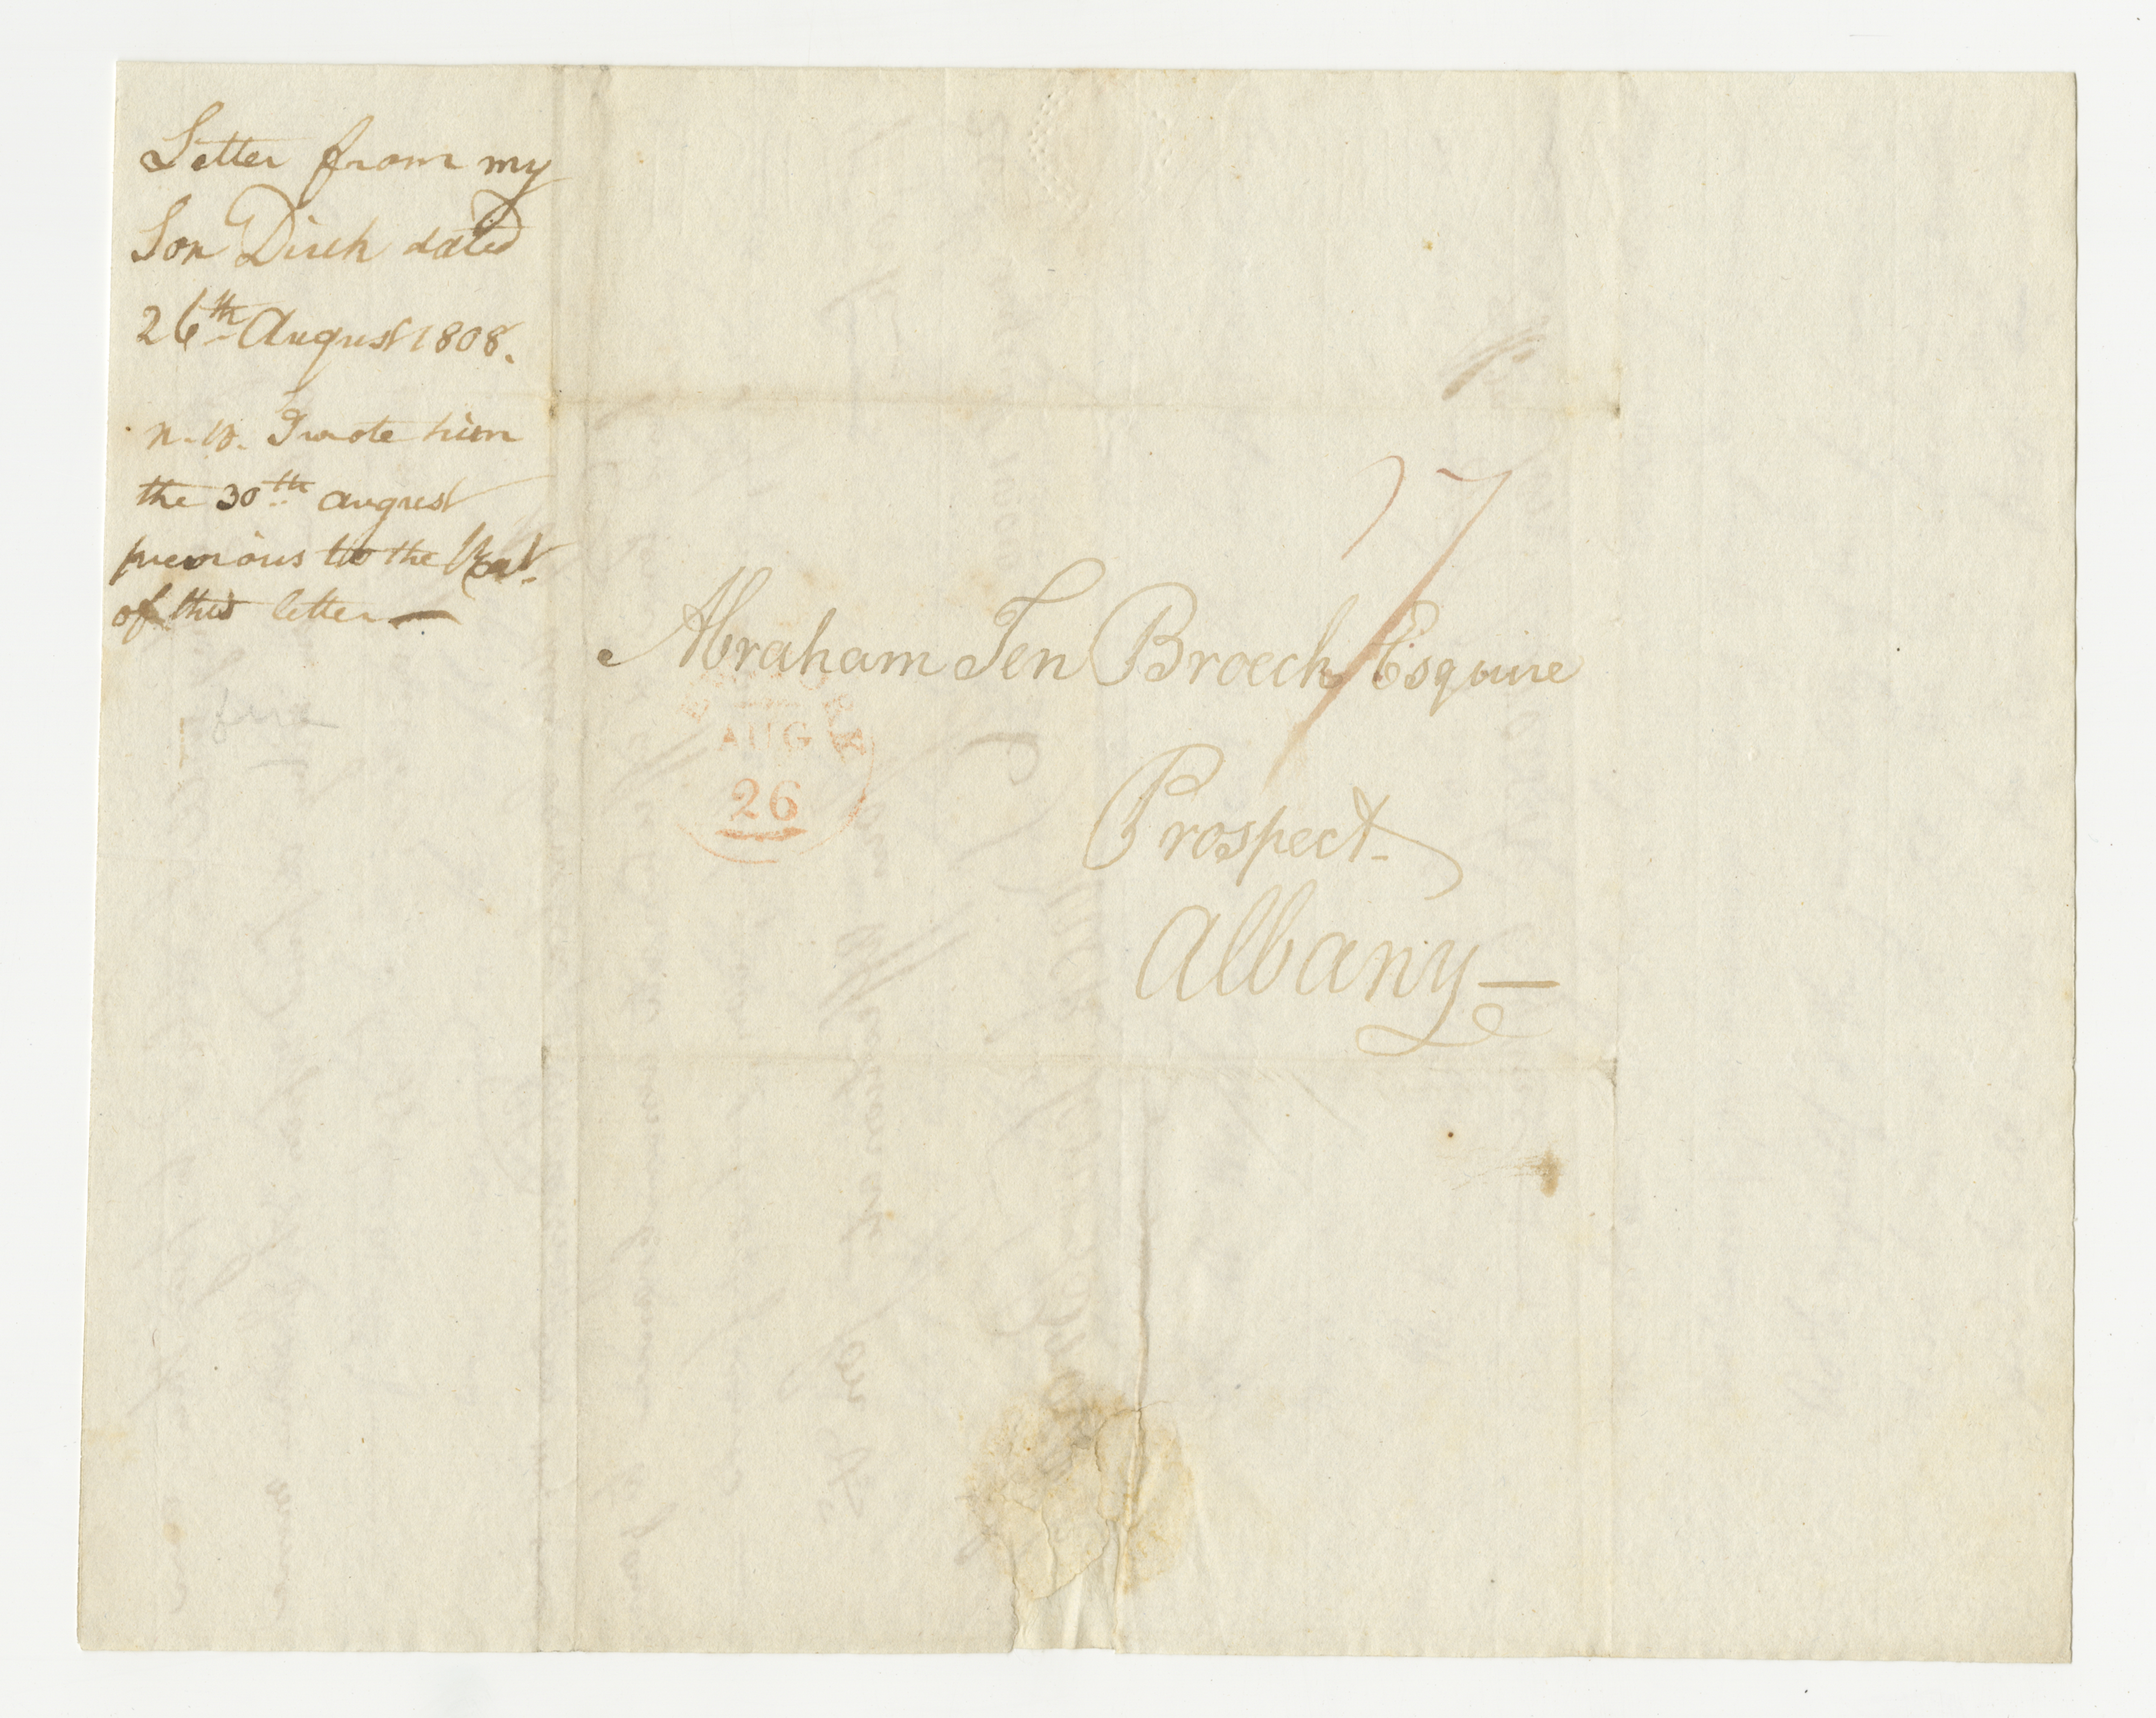 Letter from my
Son Dirck dated
26th August 1808.
N.B. I wrote him
the 30th august
previous to the
of this letter —
17
Abraham Ten Broeck Esquire
AUG
26
Prospect
Albany —